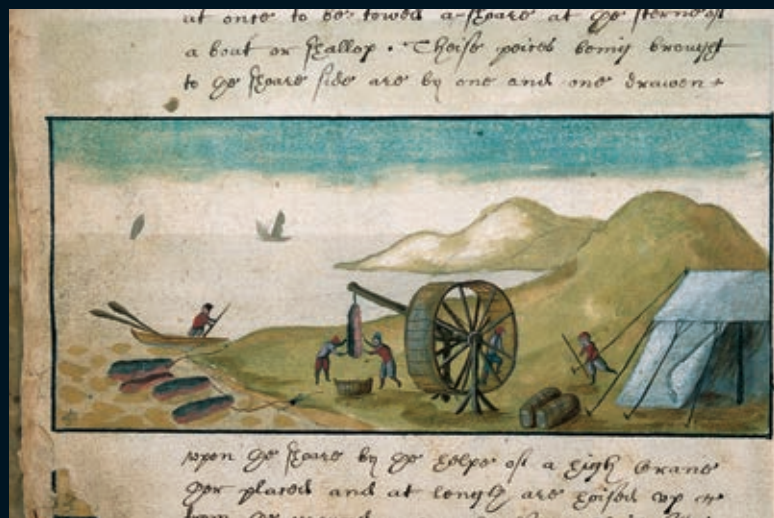 at once to be towed a-shoare at the sterne of
a boat or shallop. Theise peices being brought
to the shoare side are by one and one drawen
vpon the shoare by the helpe of a high Crane
ther placed and at length are hoised vp
from the ground